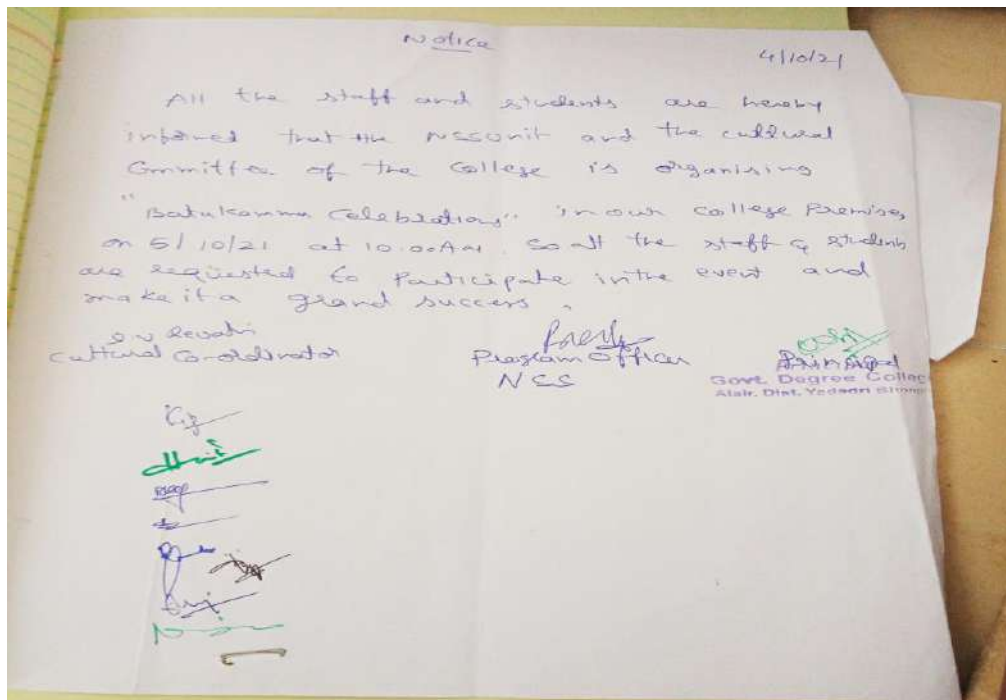 Notice
4/10/21
All the staff and students are hereby
informed that the NSSUnit and the cultural
Committee of the College is organising
"Batukamma Celebrations" in our college Premises
on 5/10/21 at 10.00AM. So all the staff & students
are requested to Participate in the event and
make it a grand success.
Cultural Co-ordinator
Program Officer
NSS
Principal
Govt. Degree Colleg
Alair. Dist. Yadadri